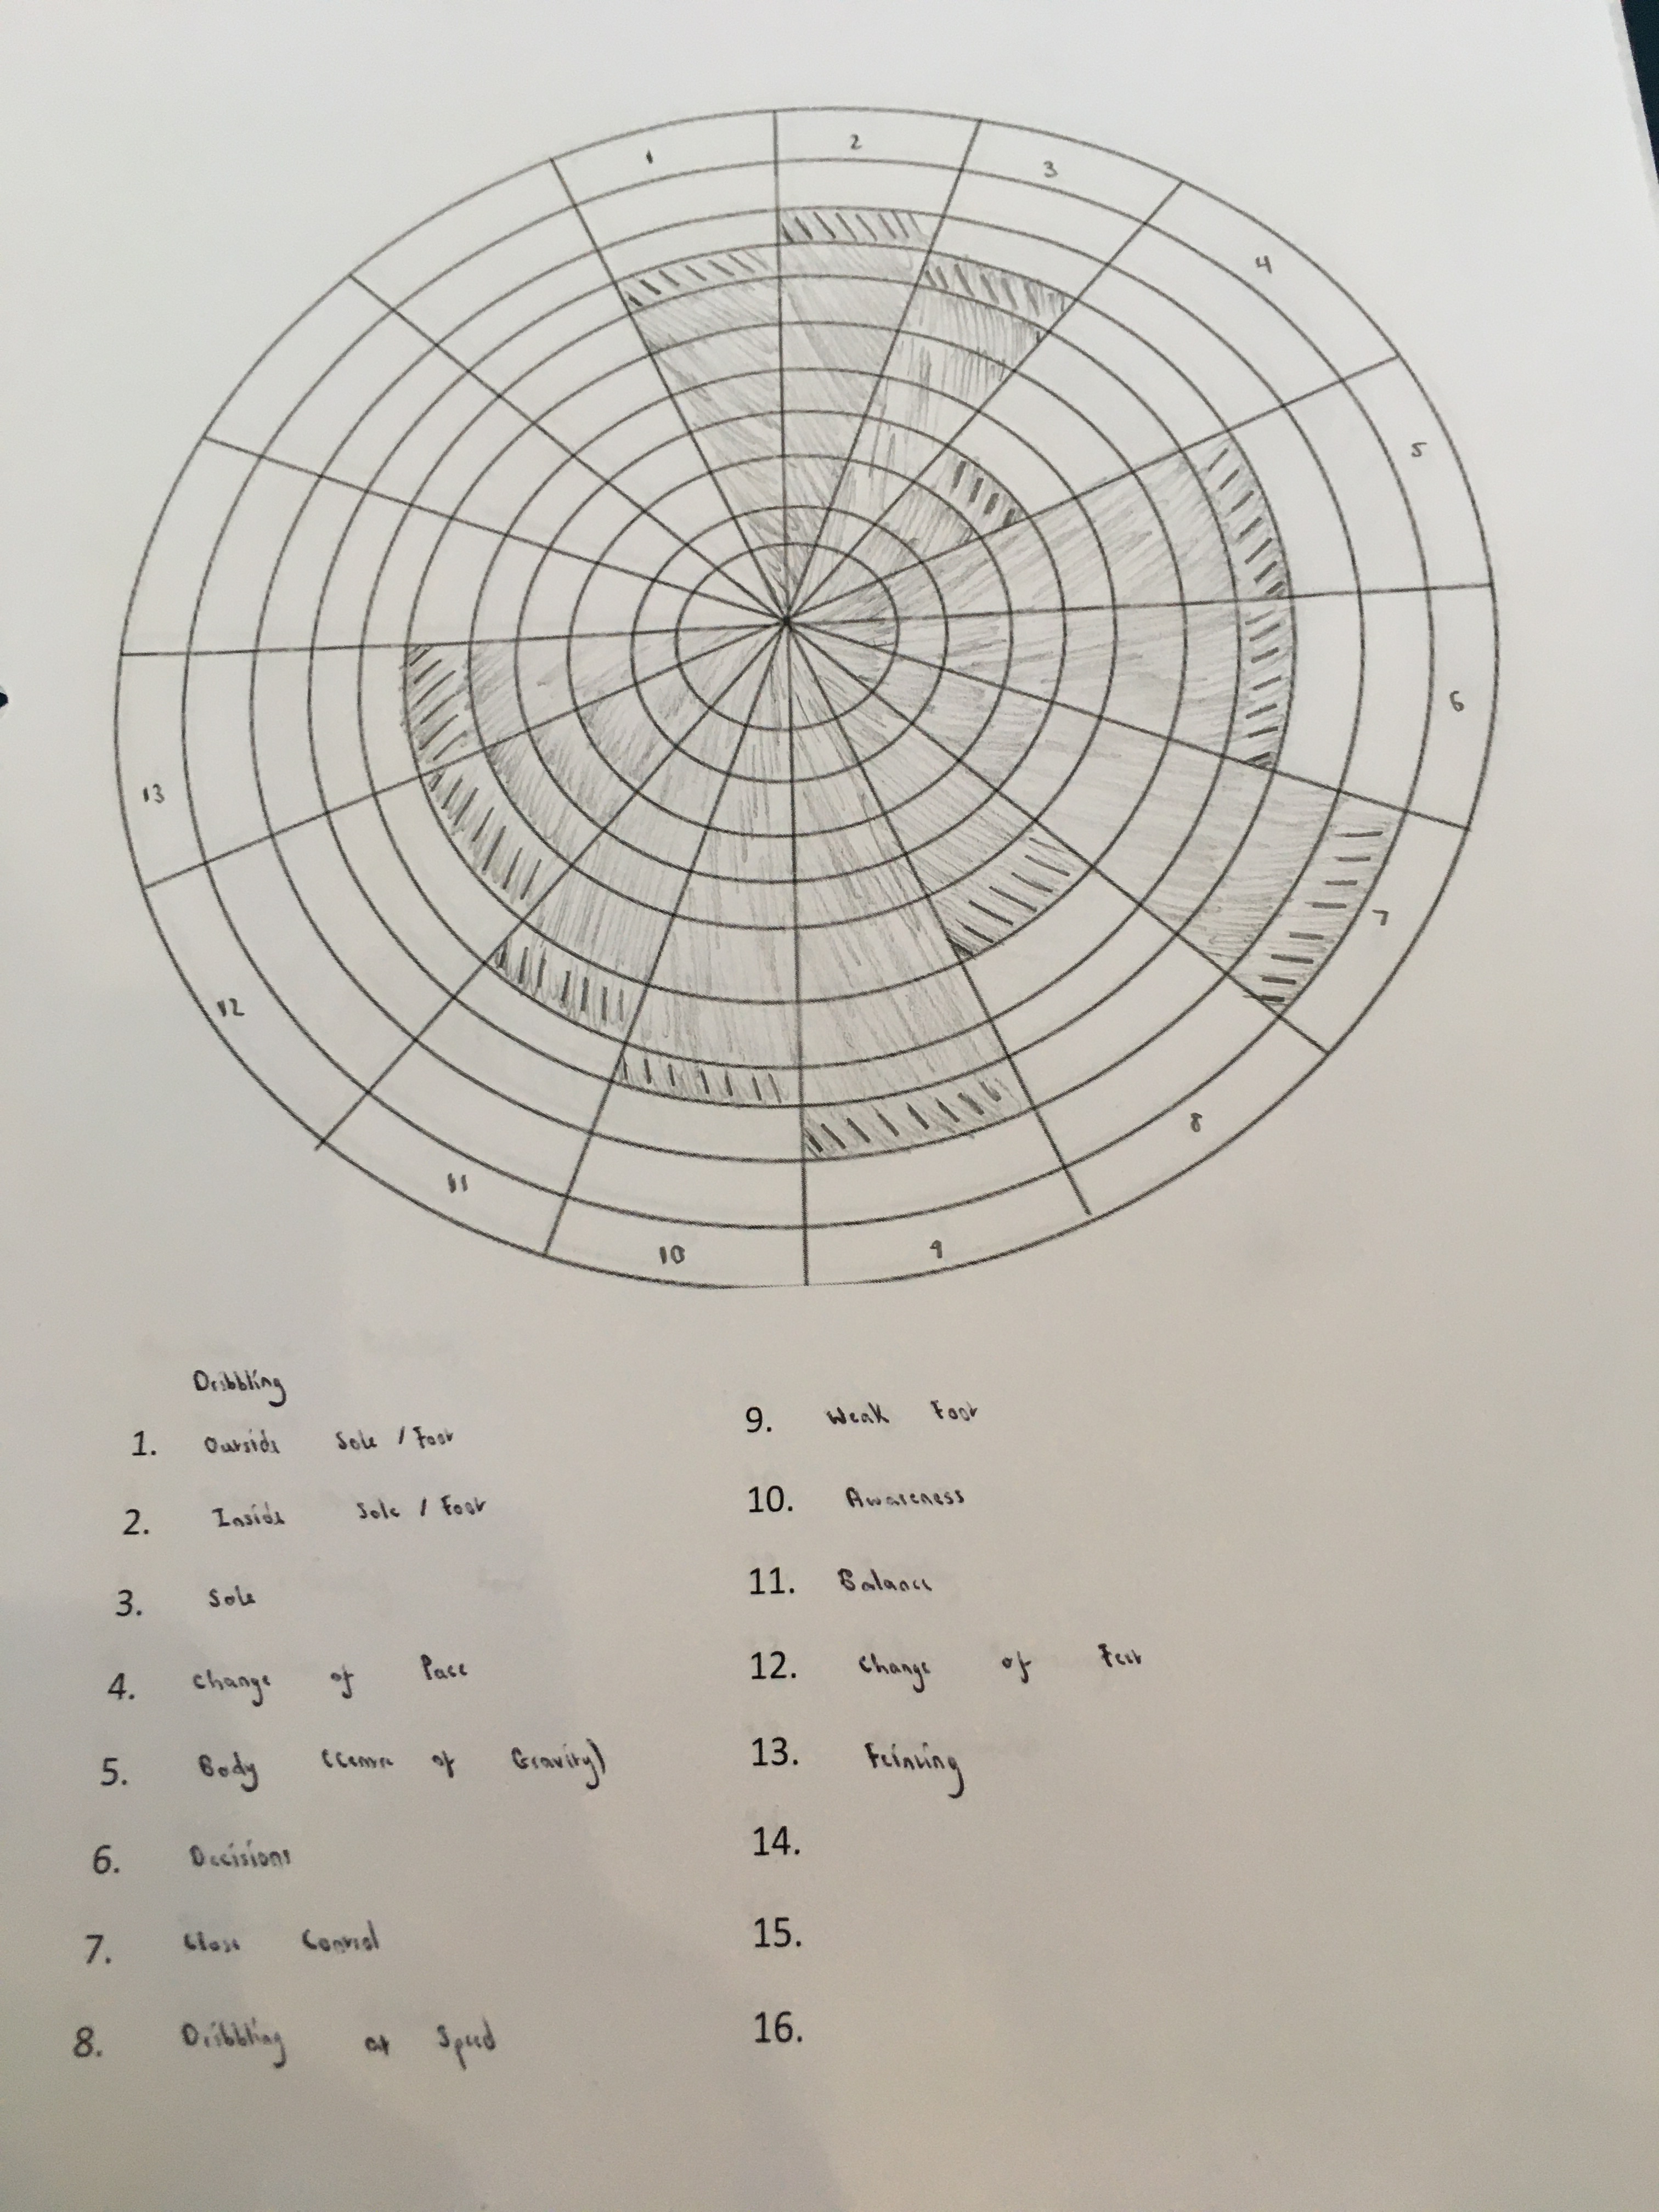 1
2
3
4
5
6
7
8
9
10
11
12
13
Dribbling
1. Outside Sole / Foot
2. Inside Sole / Foot
3. Sole
4. Change of Pace
5. Body (Centre of Gravity)
6. Decisions
7. Close Control
8. Dribbling at Speed
9. Weak Foot
10. Awareness
11. Balance
12. Change of Feet
13. Feinting
14.
15.
16.